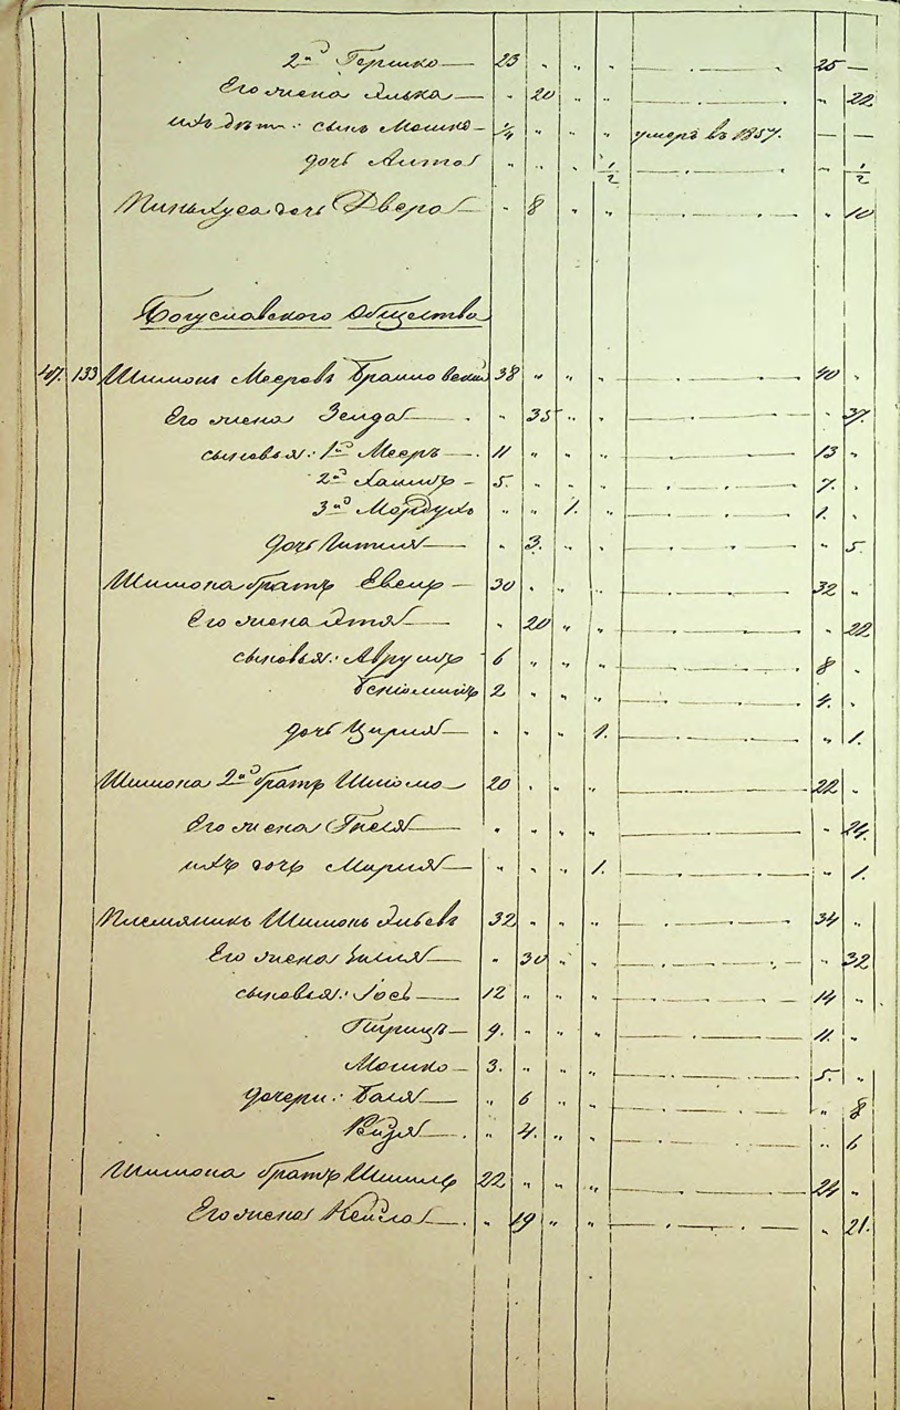 2й Гершко — 23 " " " — . — . 25 —
Его жена Элька — " 20 " " — . — . " 22
ихъ дѣти: сынъ Мошко — 1/4 " " " умеръ въ 1857. — —
дочь " " " 1/2 — . — . " 1/2
Пинькуса дочь Двера — " 8 " " — . — . " 10
Богуславского Общества
407. 133 Шимонъ Мееровъ 38 " " " — . — . 40 "
Его жена Зелда — " 35 " " — . — . " 37.
сыновья: 1й Мееръ — 11 " " " — . — . 13 "
2й Хаимъ — 5. " " " — . — . 7. "
3й Мордухъ " " 1. " — . — . 1. "
дочь — " 3. " " — . — . " 5.
Шимона братъ — 30 " " " — . — . 32 "
Его жена — " 20 " " — . — . " 22
сыновья: Аврумъ 6 " " " — . — . 8 "
Беніоминъ 2 " " " — . — . 4. "
дочь Цирля — " " " 1. — . — . " 1.
Шимона 2й братъ Шліома 20 " " " — . — . 22 "
Его жена — " " " " — . — . " 24.
ихъ дочь Мирля — " " " 1. — . — . " 1.
Племяникъ Шимонъ 32 " " " — . — . 34 "
Его жена — " 30 " " — . — . " 32
сыновья: Іось — 12 " " " — . — . 14 "
— 9. " " " — . — . 11. "
Мошко — 3. " " " — . — . 5. "
дочери: Бася — " 6 " " — . — . " 8
Рейзя — " 4. " " — . — . " 6
Шимона братъ 22 " " " — . — . 24 "
Его жена Кейла — " 19 " " — . — . " 21.